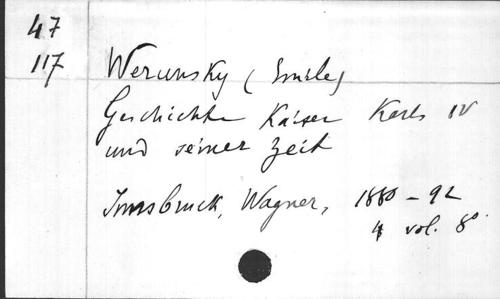 47
117
Werunsky (Emile)
Geschichte Kaiser Karls IV
und seiner Zeit
Innsbruck, Wagner, 1880-92
4 vol. 8°